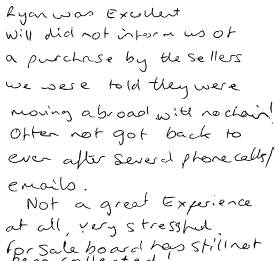 Ryan was Excellent
Will did not inform us of
a purchase by the sellers
we were told they were
moving abroad with no chain!
Often not got back to
even after several phone calls/
emails.
Not a great Experience
at all, very stressful.
for sale board has still not
been collected